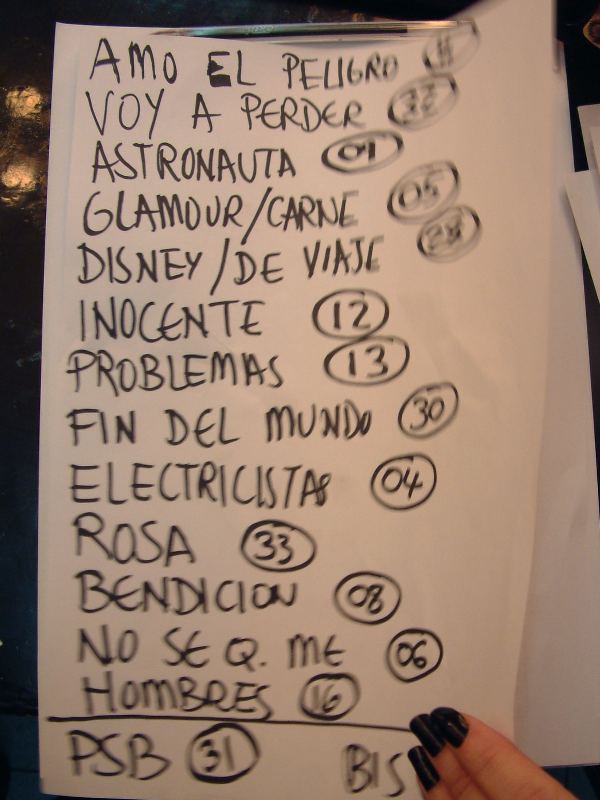 AMO EL PELIGRO 11
VOY A PERDER
ASTRONAUTA 09
GLAMOUR/CARNE 05
DISNEY/DE VIAJE 28
INOCENTE 12
PROBLEMAS 13
FIN DEL MUNDO 30
ELECTRICISTAS 04
ROSA 33
BENDICION 08
NO SE Q. ME 06
HOMBRES 16
PSB 31 BIS